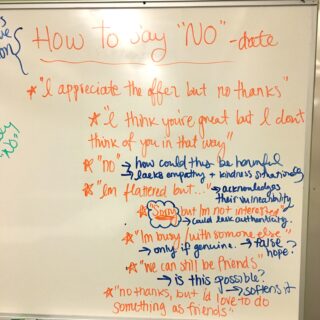 How to say "NO" - date
* "I appreciate the offer but no thanks"
* "I think you're great but I don't
think of you in that way"
* "no" → how could this be harmful
→ lacks empathy + kindness
* "I'm flattered but..." → acknowledges
their vulnerability
* "Sorry but I'm not interested"
→ could lack authenticity
* "I'm busy/with someone else"
→ only if genuine. → false
hope?
* "we can still be friends"
→ is this possible?
→ softens it
* "no thanks, but I'd love to do
something as friends"